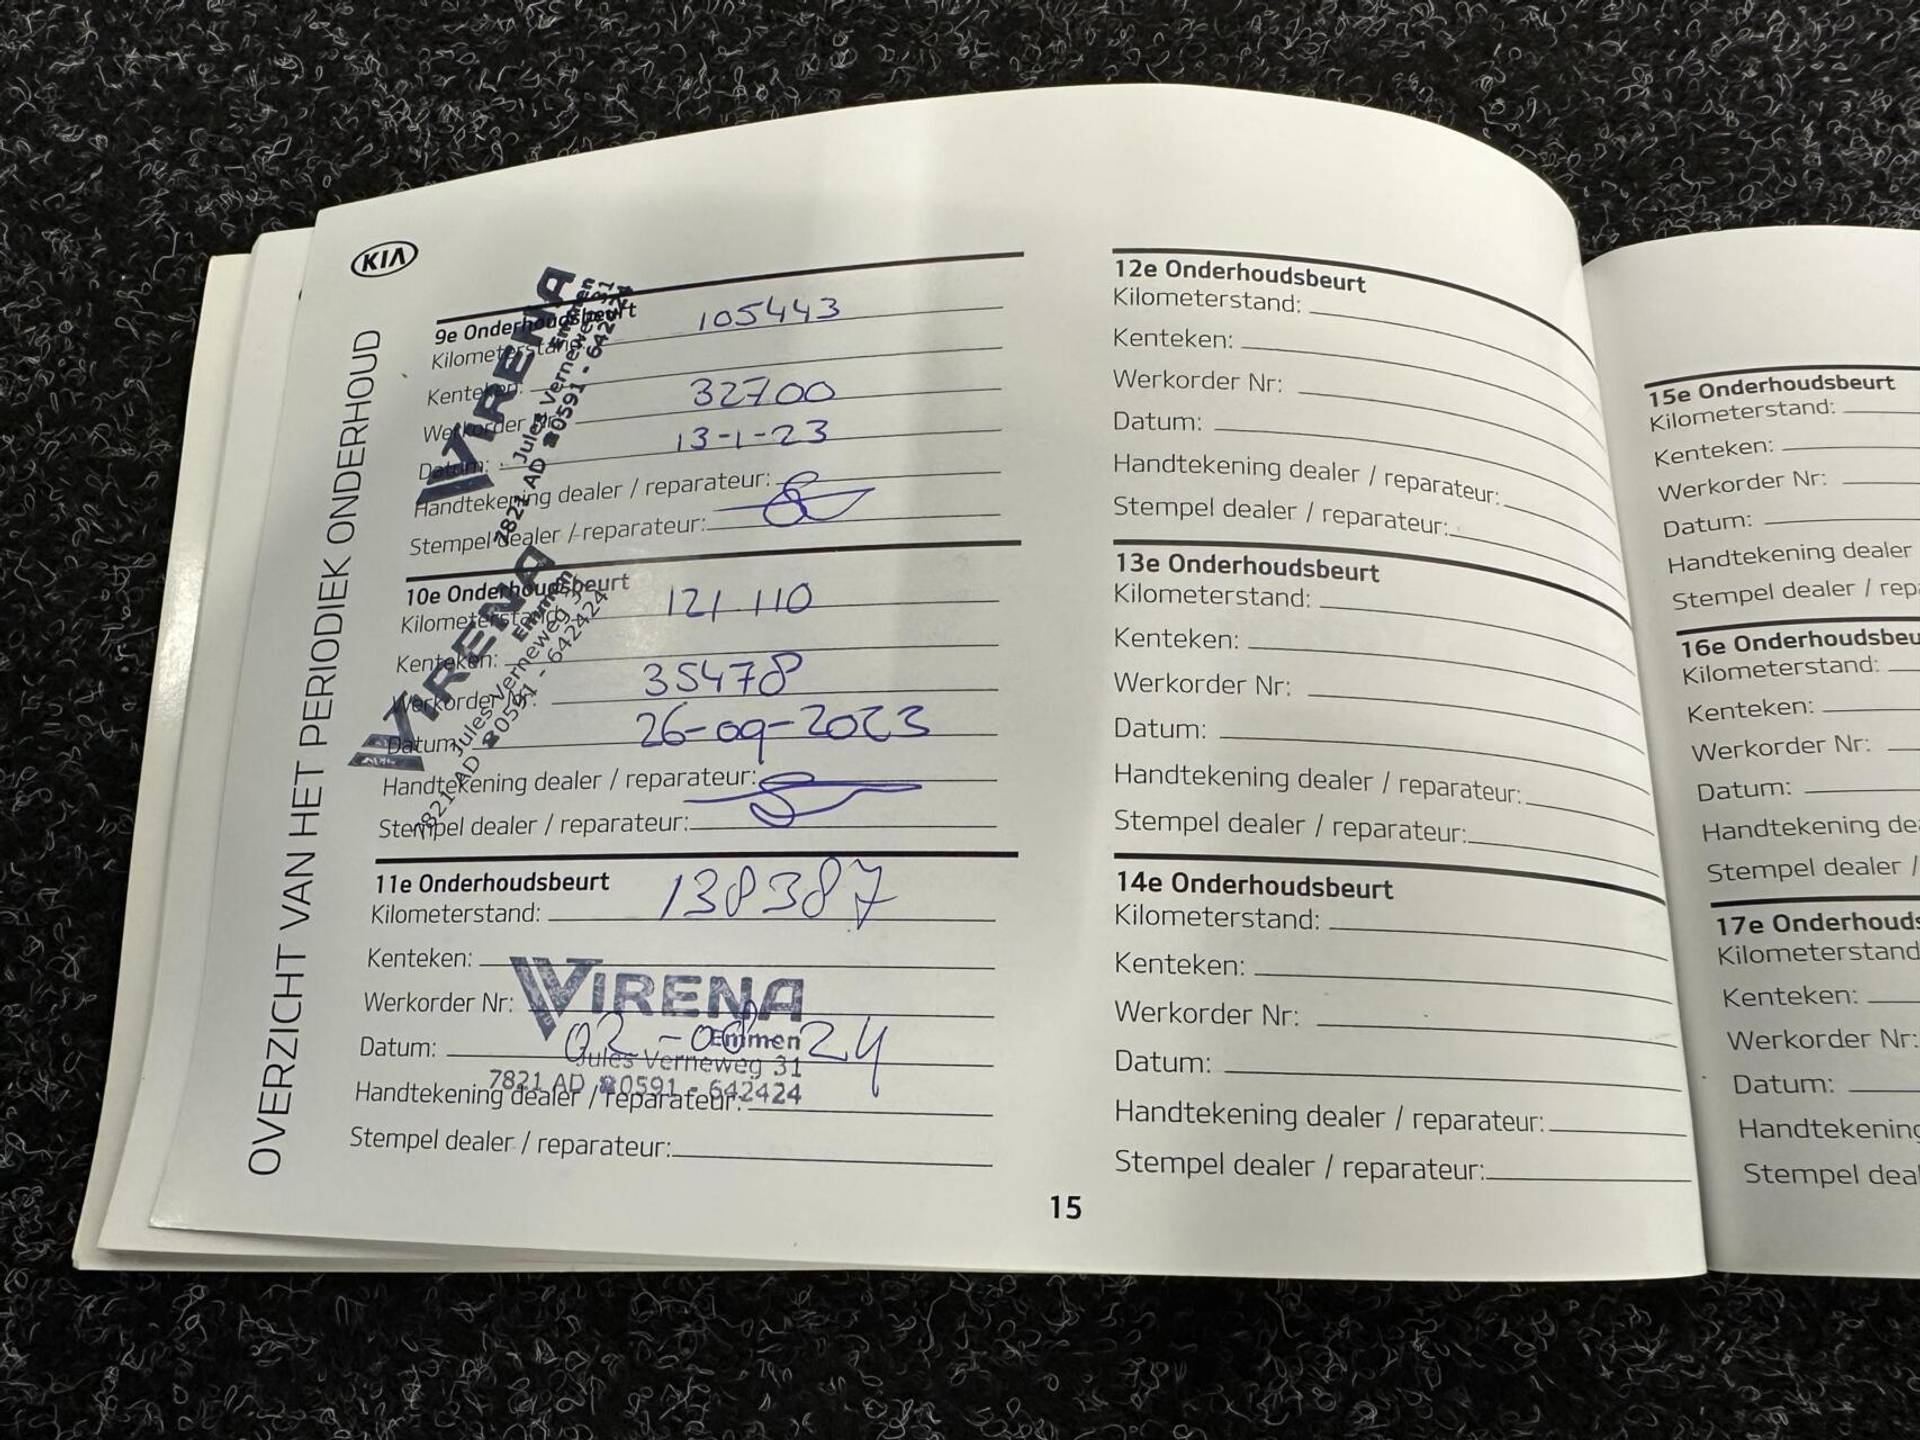 KIA
OVERZICHT VAN HET PERIODIEK ONDERHOUD
9e Onderhoudsbeurt
Kilometerstand: 105443
Kenteken:
Werkorder Nr: 32700
Datum: 13-1-23
Handtekening dealer / reparateur:
Stempel dealer / reparateur:
VIRENA
Emmen
Jules Verneweg 31
7821 AD ☎0591 - 642424
10e Onderhoudsbeurt
Kilometerstand: 121 110
Kenteken:
Werkorder Nr: 35478
Datum: 26-09-2023
Handtekening dealer / reparateur:
Stempel dealer / reparateur:
VIRENA
Emmen
Jules Verneweg 31
7821 AD ☎0591 - 642424
11e Onderhoudsbeurt
Kilometerstand: 138387
Kenteken:
Werkorder Nr:
Datum: 02-08-24
Handtekening dealer / reparateur:
Stempel dealer / reparateur:
VIRENA
Emmen
Jules Verneweg 31
7821 AD ☎0591 - 642424
12e Onderhoudsbeurt
Kilometerstand:
Kenteken:
Werkorder Nr:
Datum:
Handtekening dealer / reparateur:
Stempel dealer / reparateur:
13e Onderhoudsbeurt
Kilometerstand:
Kenteken:
Werkorder Nr:
Datum:
Handtekening dealer / reparateur:
Stempel dealer / reparateur:
14e Onderhoudsbeurt
Kilometerstand:
Kenteken:
Werkorder Nr:
Datum:
Handtekening dealer / reparateur:
Stempel dealer / reparateur:
15
15e Onderhoudsbeurt
Kilometerstand:
Kenteken:
Werkorder Nr:
Datum:
Handtekening dealer
Stempel dealer / rep
16e Onderhoudsbeu
Kilometerstand:
Kenteken:
Werkorder Nr:
Datum:
Handtekening de
Stempel dealer /
17e Onderhouds
Kilometerstand
Kenteken:
Werkorder Nr:
Datum:
Handtekening
Stempel deal